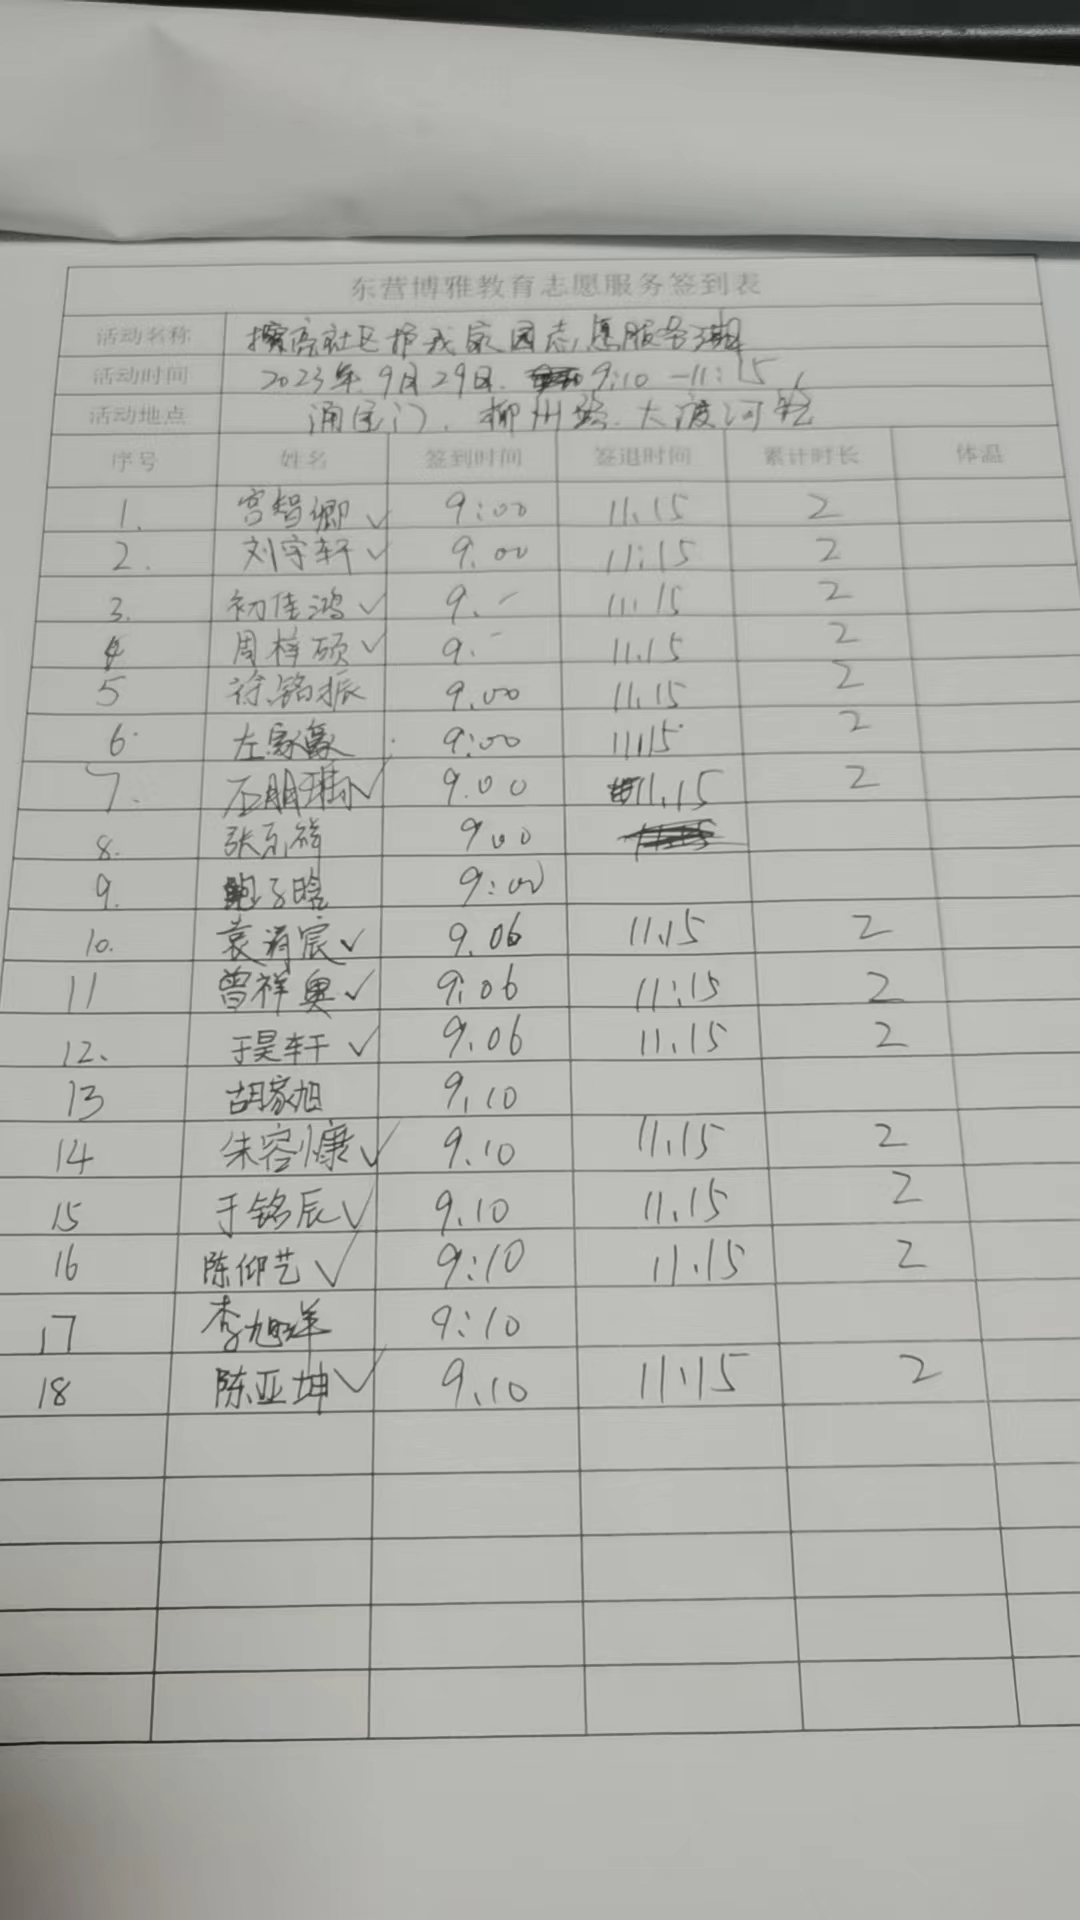 东营博雅教育志愿服务签到表
活动名称 擦亮社区护我家园志愿服务活动
活动时间 2023年9月29日 9:10-11:15
活动地点 柳州路、大渡河路
序号 姓名 签到时间 签退时间 累计时长 体温
1. 宫智卿✓ 9:00 11.15 2
2. 刘宇轩✓ 9.00 11:15 2
3. 初佳鸿✓ 9.- 11:15 2
4 周梓硕✓ 9.- 11.15 2
5 徐铭振 9.00 11.15 2
6 左家豪 9:00 1115 2
7. 石朋✓ 9.00 11.15 2
8. 张东 9.00
9. 鲍子晗 9:00
10. 袁宸✓ 9.06 11.15 2
11 曾祥奥✓ 9:06 11:15 2
12. 于昊轩✓ 9.06 11.15 2
13 胡家旭 9.10
14 朱容慷✓ 9.10 11.15 2
15 于铭辰✓ 9.10 11.15 2
16 陈仰艺✓ 9:10 11.15 2
17 李旭洋 9:10
18 陈亚坤✓ 9.10 11.15 2